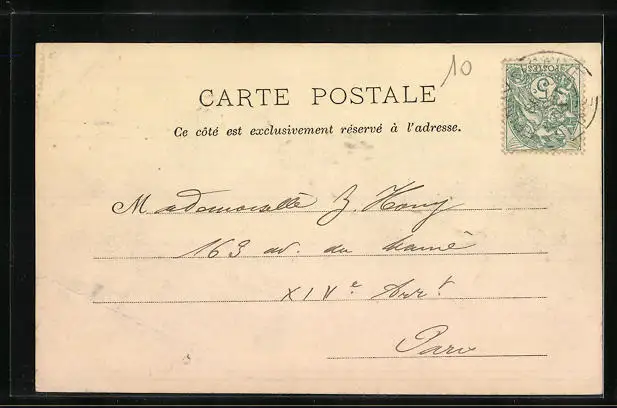 10
CARTE POSTALE
Ce côté est exclusivement réservé à l'adresse.
POSTES
5
Mademoiselle
163 av. du Maine
XIVe Arrt
Paris